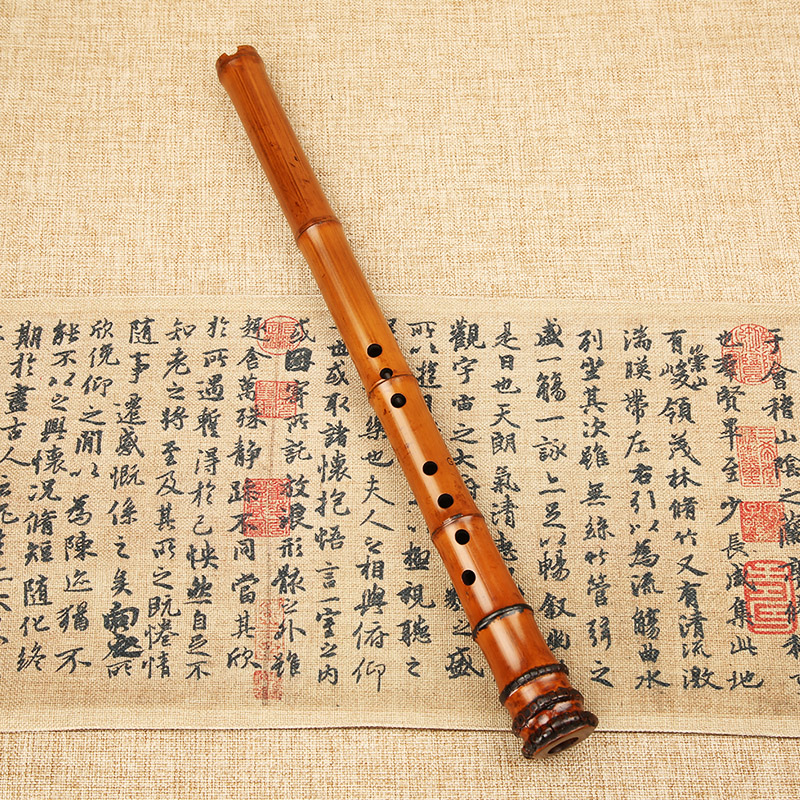 于會稽山陰之蘭
也羣賢畢至少長咸集此地
有崇山峻領茂林脩竹又有清流激
湍暎帶左右引以為流觴曲水
列坐其次雖無絲竹管弦之
盛一觴一詠亦足以暢敘幽
是日也天朗氣清惠
觀宇宙之大 之盛
所以遊 極視聽之
樂也夫人之相與俯仰
一世或取諸懷抱悟言一室之內
或因寄所託放浪形骸之外雖
趣舍萬殊靜躁不同當其欣
於所遇暫得於己怏然自足不
知老之將至及其所之既惓情
隨事遷感慨係之矣向之所
欣俛仰之閒以為陳迹猶不
能不以之興懷況脩短隨化終
期於盡古人云死生